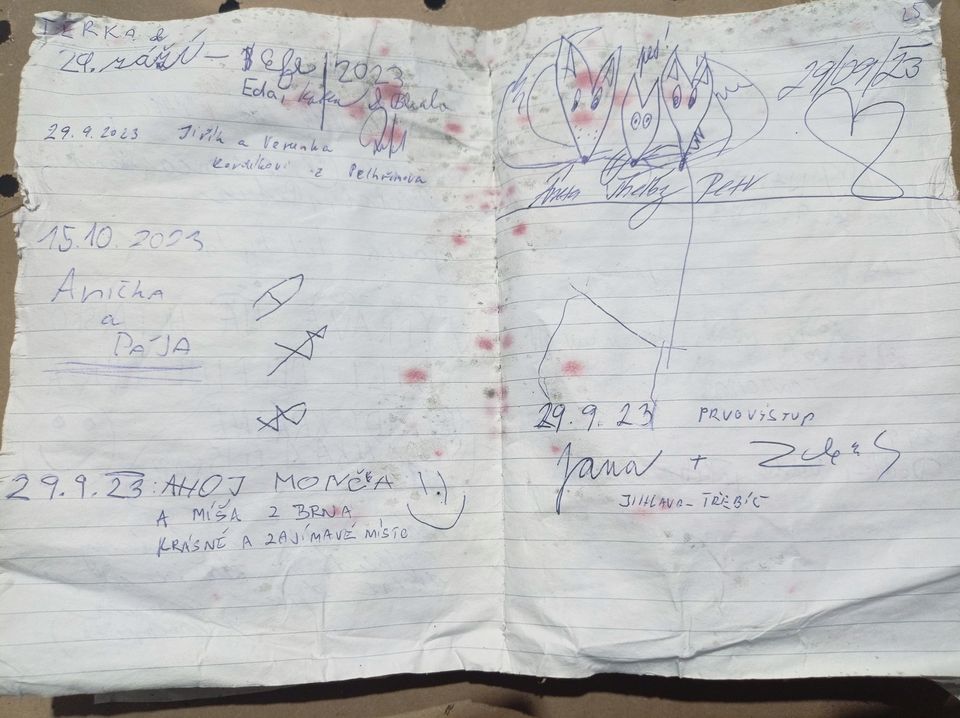 TERKA &
29. září - 2023
Eda, &
29.9.2023 Jiřík a Verunka
z Pelhřimova
15.10.2023
Anička
a
PÁJA
29.9.23: AHOJ MONČA :)
A MÍŠA Z BRNA
KRÁSNÉ A ZAJÍMAVÉ MÍSTO
25
29/09/23
Shelby Petr
29.9.23 PRVOVÝSTUP
Jana +
JIHLAVA - TŘEBÍČ